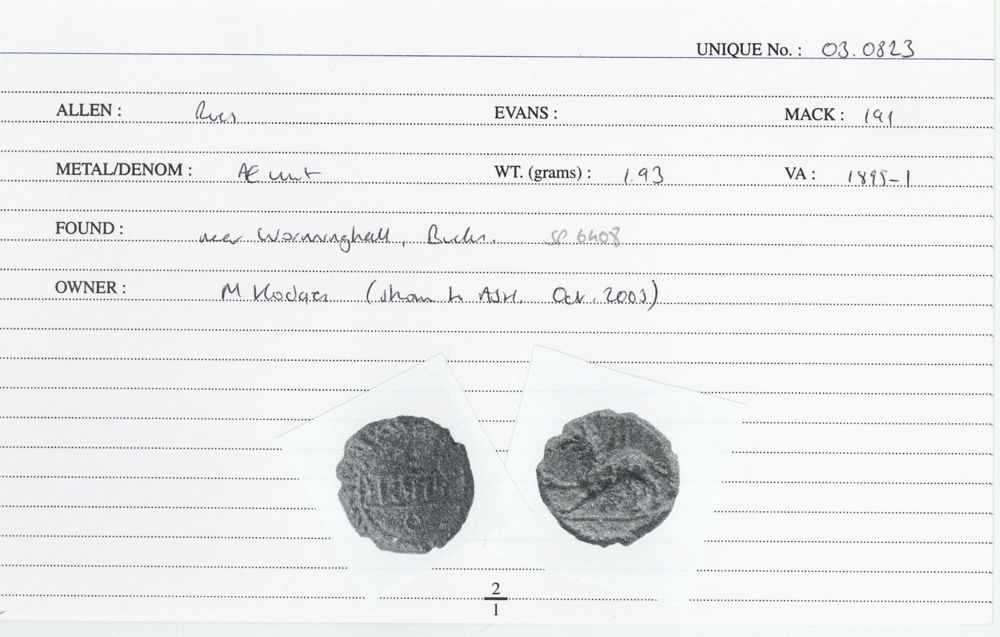 UNIQUE No. : 03.0823
ALLEN : Rues EVANS : MACK : 191
METAL/DENOM : Æ unit WT. (grams) : 1.93 VA : 1895-1
FOUND : near Worminghall, Bucks. SP 6408
OWNER : M Hodges (shown to ASH. Oct. 2003)
2
1